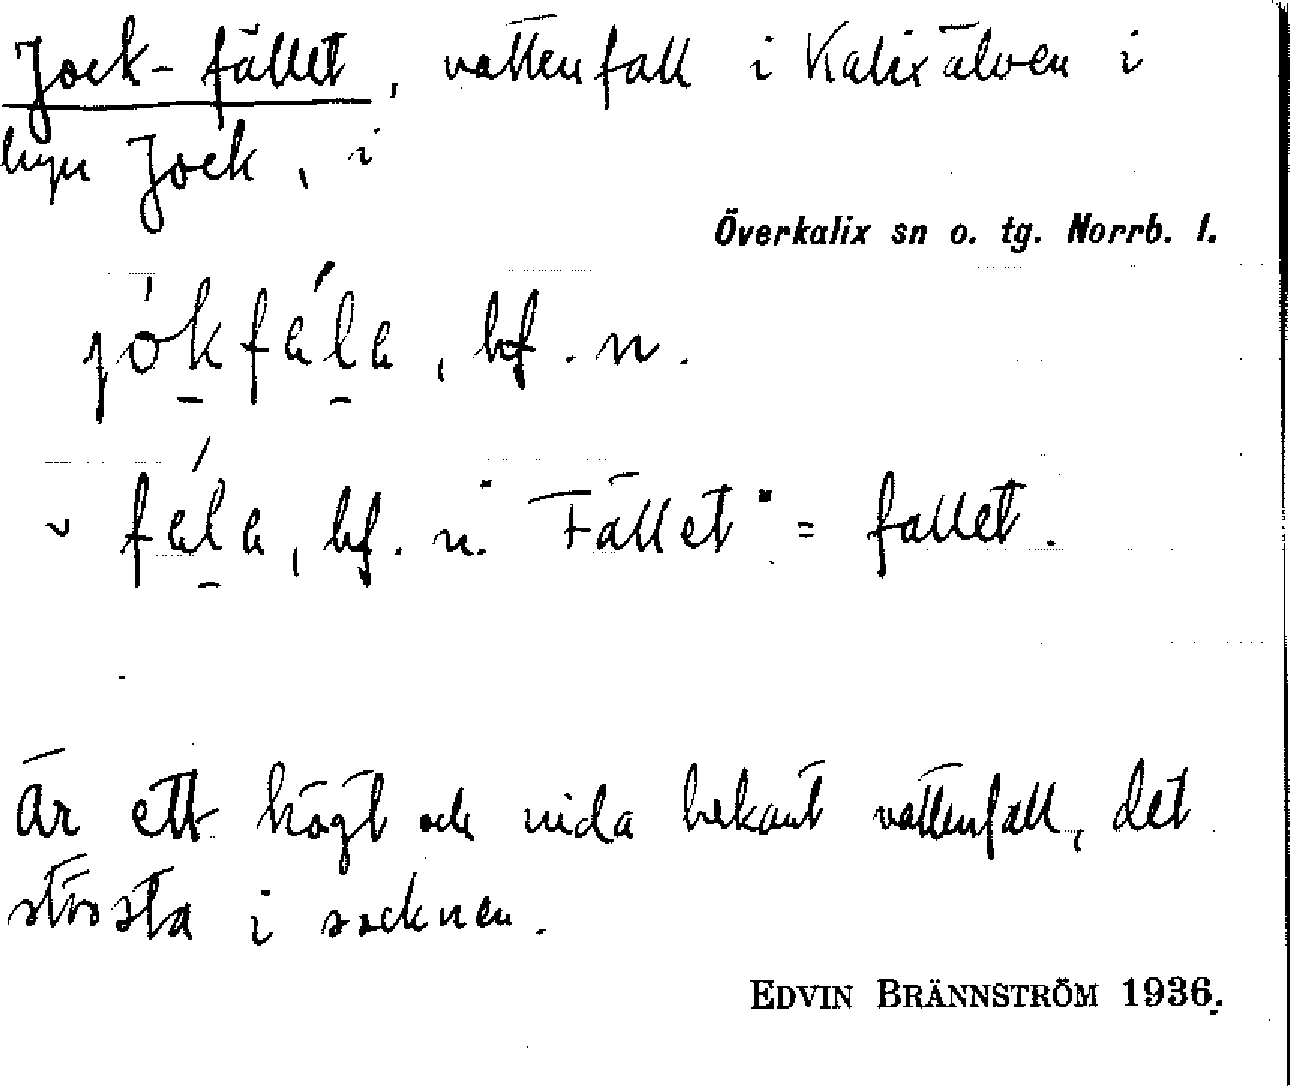 Jock-fället, vattenfall i Kalixälven i
byn Jock, i
Överkalix sn o. tg. Norrb. l.
jòkfála, bf. n.
fála, bf. n. "Fället" = fallet.
Är ett högt och vida bekant vattenfall, det
största i socknen.
EDVIN BRÄNNSTRÖM 1936.